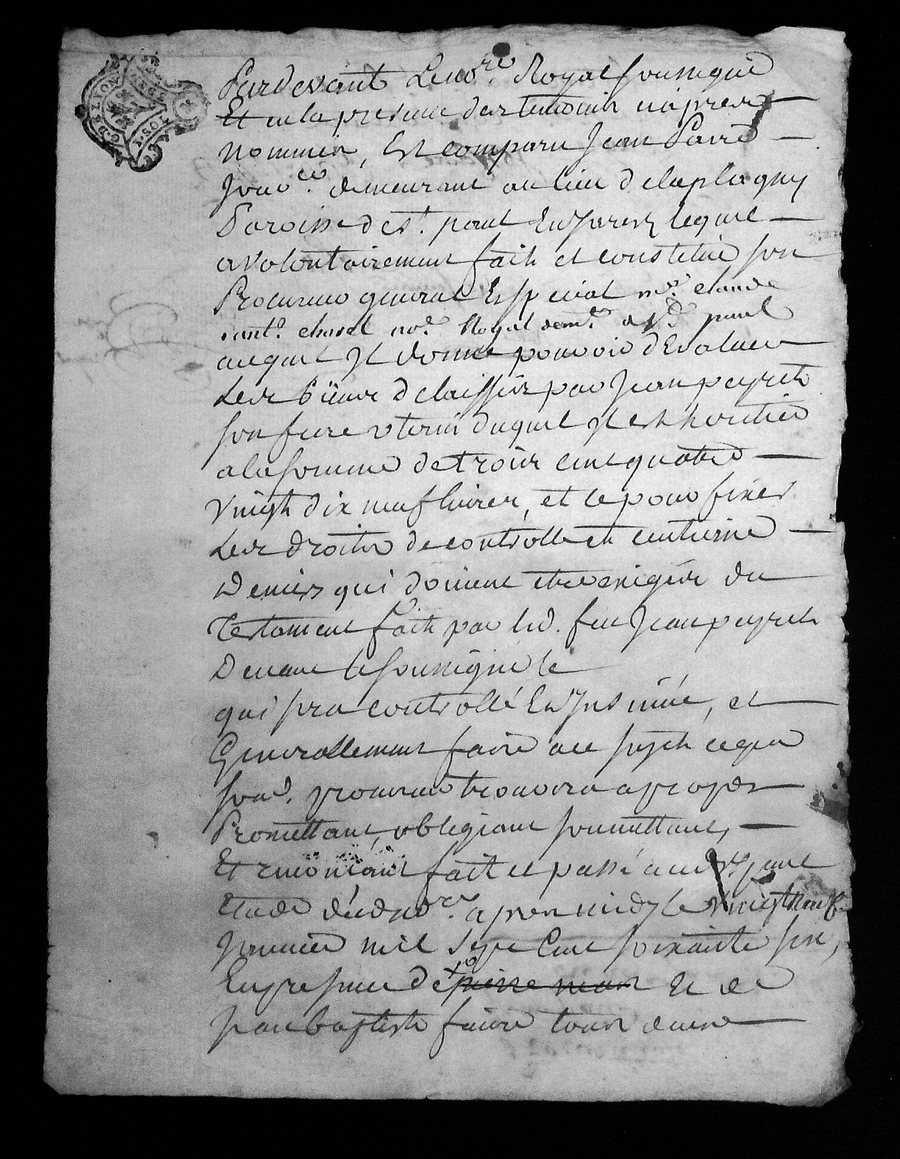 Pardevant Le no.re Royal soussigné
Et en la presence des temoins cy apres
nommés, Est comparu Jean Favre
demeurant au lieu de laplagny
Paroisse de st. paul En Jarez lequel
a volontairement fait et constitué son
Procureur general Et special me. claude
ant. chaset no.re Royal dem.t a s.d paul
auquel Il donne pouvoir d'Evaluer
Les biens delaissés par Jean peyret
son frere uterin duquel Il est heritier
a la somme de trois cent quatre
vingt dix neuf livres, et ce pour fixer
Les droits de controlle et centieme
Deniers qui doivent etre exigés du
Testament fait par led. feu Jean peyret
Devant le soussigné le
qui sera controllé Et Insinué, et
Generallement faire au sujet ce que
sond. procureur trouvera a propos
Promettant, obligeant soumettant,
Et renoncant fait et passé aud. st paul
Etude dud. no.re apres midy le vingt neuf
Janvier mil sept Cent soixante six,
En presence de pierre Et de
jean baptiste faure tous deux